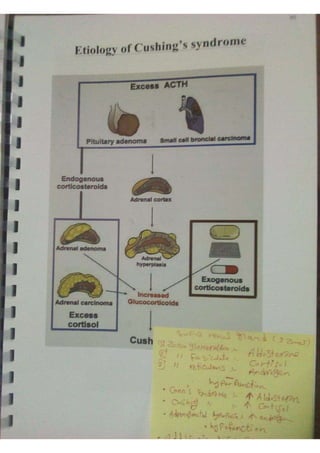 Etiology of Cushing's syndrome
Excess ACTH
Pituitary adenoma
Small cell broncial carcinoma
Endogenous
corticosteroids
Adrenal cortex
Adrenal adenoma
Adrenal
hyperplasia
Adrenal carcinoma
Increased
Glucocorticoids
Exogenous
corticosteroids
Excess
cortisol
Cush
renal gland (3 Zones)
1) Zona glomerulosa : Aldosterone
2) " Fasiculata : Cortisol
3) " reticularis : Androgen
hyper function
• Conn's Syndrome : ↑ Aldosteron
• Cushing : ↑ Cortisol
• ↑ androgen
• hypofunction